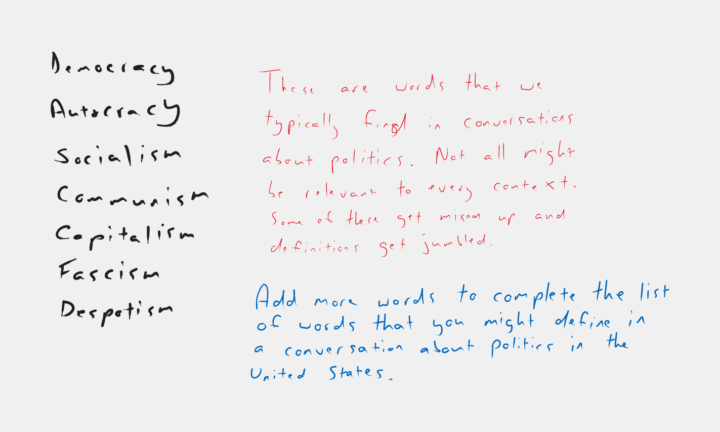 Democracy
Autocracy
Socialism
Communism
Capitalism
Fascism
Despotism
These are words that we
typically find in conversations
about politics. Not all might
be relevant to every context.
Some of these get mixed up and
definitions get jumbled.
Add more words to complete the list
of words that you might define in
a conversation about politics in the
United States.